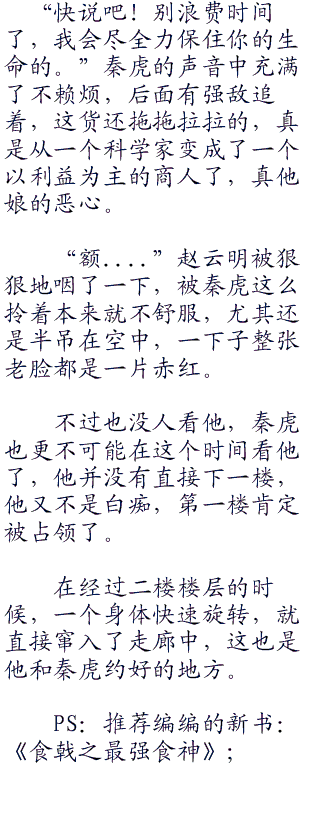 “快说吧！别浪费时间
了，我会尽全力保住你的生
命的。”秦虎的声音中充满
了不赖烦，后面有强敌追
着，这货还拖拖拉拉的，真
是从一个科学家变成了一个
以利益为主的商人了，真他
娘的恶心。
“额....”赵云明被狠
狠地咽了一下，被秦虎这么
拎着本来就不舒服，尤其还
是半吊在空中，一下子整张
老脸都是一片赤红。
不过也没人看他，秦虎
也更不可能在这个时间看他
了，他并没有直接下一楼，
他又不是白痴，第一楼肯定
被占领了。
在经过二楼楼层的时
候，一个身体快速旋转，就
直接窜入了走廊中，这也是
他和秦虎约好的地方。
PS：推荐编编的新书：
《食戟之最强食神》；